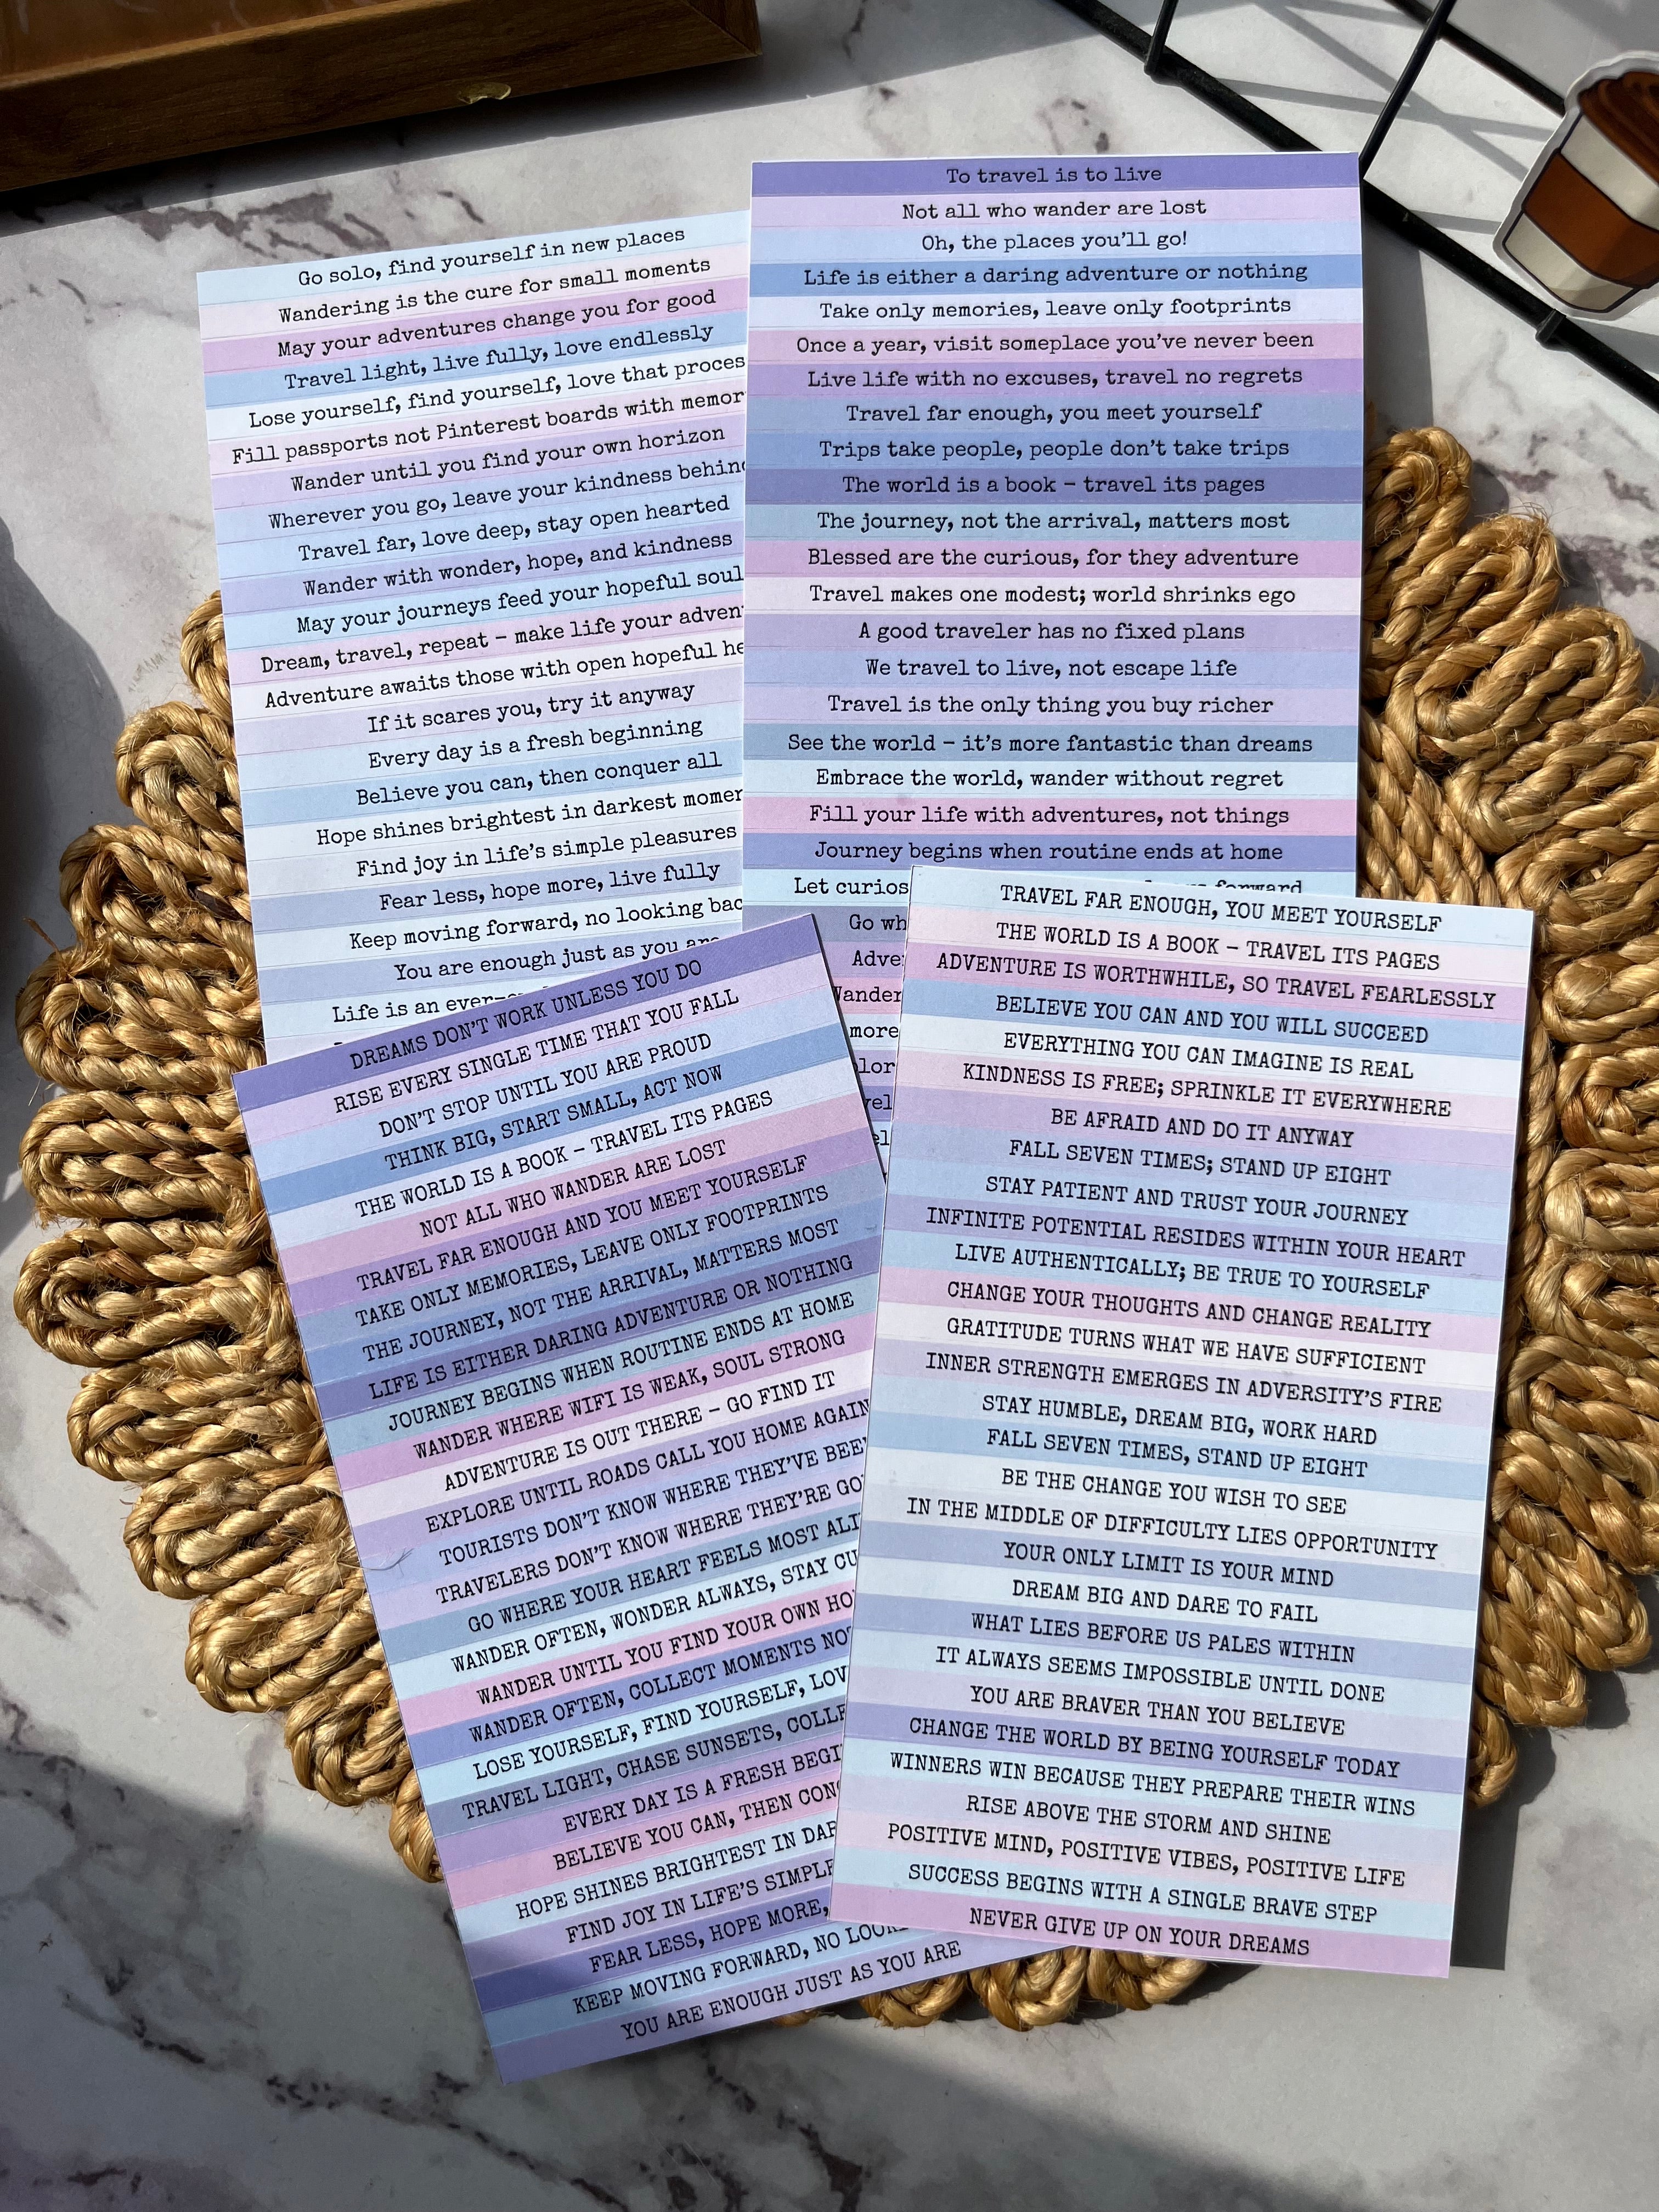 Go solo, find yourself in new places
Wandering is the cure for small moments
May your adventures change you for good
Travel light, live fully, love endlessly
Lose yourself, find yourself, love that
Fill passports not Pinterest boards with
Wander until you find your own horizon
Wherever you go, leave your kindness
Travel far, love deep, stay open hearted
Wander with wonder, hope, and kindness
May your journeys feed your hopeful soul
Dream, travel, repeat – make life your
Adventure awaits those with open hopeful
If it scares you, try it anyway
Every day is a fresh beginning
Believe you can, then conquer all
Hope shines brightest in darkest
Find joy in life's simple pleasures
Fear less, hope more, live fully
Keep moving forward, no looking
You are enough just as you are
Life is an
To travel is to live
Not all who wander are lost
Oh, the places you'll go!
Life is either a daring adventure or nothing
Take only memories, leave only footprints
Once a year, visit someplace you've never been
Live life with no excuses, travel no regrets
Travel far enough, you meet yourself
Trips take people, people don't take trips
The world is a book – travel its pages
The journey, not the arrival, matters most
Blessed are the curious, for they adventure
Travel makes one modest; world shrinks ego
A good traveler has no fixed plans
We travel to live, not escape life
Travel is the only thing you buy richer
See the world – it's more fantastic than dreams
Embrace the world, wander without regret
Fill your life with adventures, not things
Journey begins when routine ends at home
Let forward
Go
more
DREAMS DON'T WORK UNLESS YOU DO
RISE EVERY SINGLE TIME THAT YOU FALL
DON'T STOP UNTIL YOU ARE PROUD
THINK BIG, START SMALL, ACT NOW
THE WORLD IS A BOOK – TRAVEL ITS PAGES
NOT ALL WHO WANDER ARE LOST
TRAVEL FAR ENOUGH AND YOU MEET YOURSELF
TAKE ONLY MEMORIES, LEAVE ONLY FOOTPRINTS
THE JOURNEY, NOT THE ARRIVAL, MATTERS MOST
LIFE IS EITHER DARING ADVENTURE OR NOTHING
JOURNEY BEGINS WHEN ROUTINE ENDS AT HOME
WANDER WHERE WIFI IS WEAK, SOUL STRONG
ADVENTURE IS OUT THERE – GO FIND IT
EXPLORE UNTIL ROADS CALL YOU HOME AGAIN
TOURISTS DON'T KNOW WHERE THEY'VE
TRAVELERS DON'T KNOW WHERE THEY'RE
GO WHERE YOUR HEART FEELS MOST
WANDER OFTEN, WONDER ALWAYS, STAY
WANDER UNTIL YOU FIND YOUR OWN
WANDER OFTEN, COLLECT MOMENTS
LOSE YOURSELF, FIND YOURSELF,
TRAVEL LIGHT, CHASE SUNSETS,
EVERY DAY IS A FRESH
BELIEVE YOU CAN, THEN
HOPE SHINES BRIGHTEST IN
FIND JOY IN LIFE'S
FEAR LESS, HOPE MORE,
KEEP MOVING FORWARD, NO
YOU ARE ENOUGH JUST AS YOU ARE
TRAVEL FAR ENOUGH, YOU MEET YOURSELF
THE WORLD IS A BOOK – TRAVEL ITS PAGES
ADVENTURE IS WORTHWHILE, SO TRAVEL FEARLESSLY
BELIEVE YOU CAN AND YOU WILL SUCCEED
EVERYTHING YOU CAN IMAGINE IS REAL
KINDNESS IS FREE; SPRINKLE IT EVERYWHERE
BE AFRAID AND DO IT ANYWAY
FALL SEVEN TIMES; STAND UP EIGHT
STAY PATIENT AND TRUST YOUR JOURNEY
INFINITE POTENTIAL RESIDES WITHIN YOUR HEART
LIVE AUTHENTICALLY; BE TRUE TO YOURSELF
CHANGE YOUR THOUGHTS AND CHANGE REALITY
GRATITUDE TURNS WHAT WE HAVE SUFFICIENT
INNER STRENGTH EMERGES IN ADVERSITY'S FIRE
STAY HUMBLE, DREAM BIG, WORK HARD
FALL SEVEN TIMES, STAND UP EIGHT
BE THE CHANGE YOU WISH TO SEE
IN THE MIDDLE OF DIFFICULTY LIES OPPORTUNITY
YOUR ONLY LIMIT IS YOUR MIND
DREAM BIG AND DARE TO FAIL
WHAT LIES BEFORE US PALES WITHIN
IT ALWAYS SEEMS IMPOSSIBLE UNTIL DONE
YOU ARE BRAVER THAN YOU BELIEVE
CHANGE THE WORLD BY BEING YOURSELF TODAY
WINNERS WIN BECAUSE THEY PREPARE THEIR WINS
RISE ABOVE THE STORM AND SHINE
POSITIVE MIND, POSITIVE VIBES, POSITIVE LIFE
SUCCESS BEGINS WITH A SINGLE BRAVE STEP
NEVER GIVE UP ON YOUR DREAMS